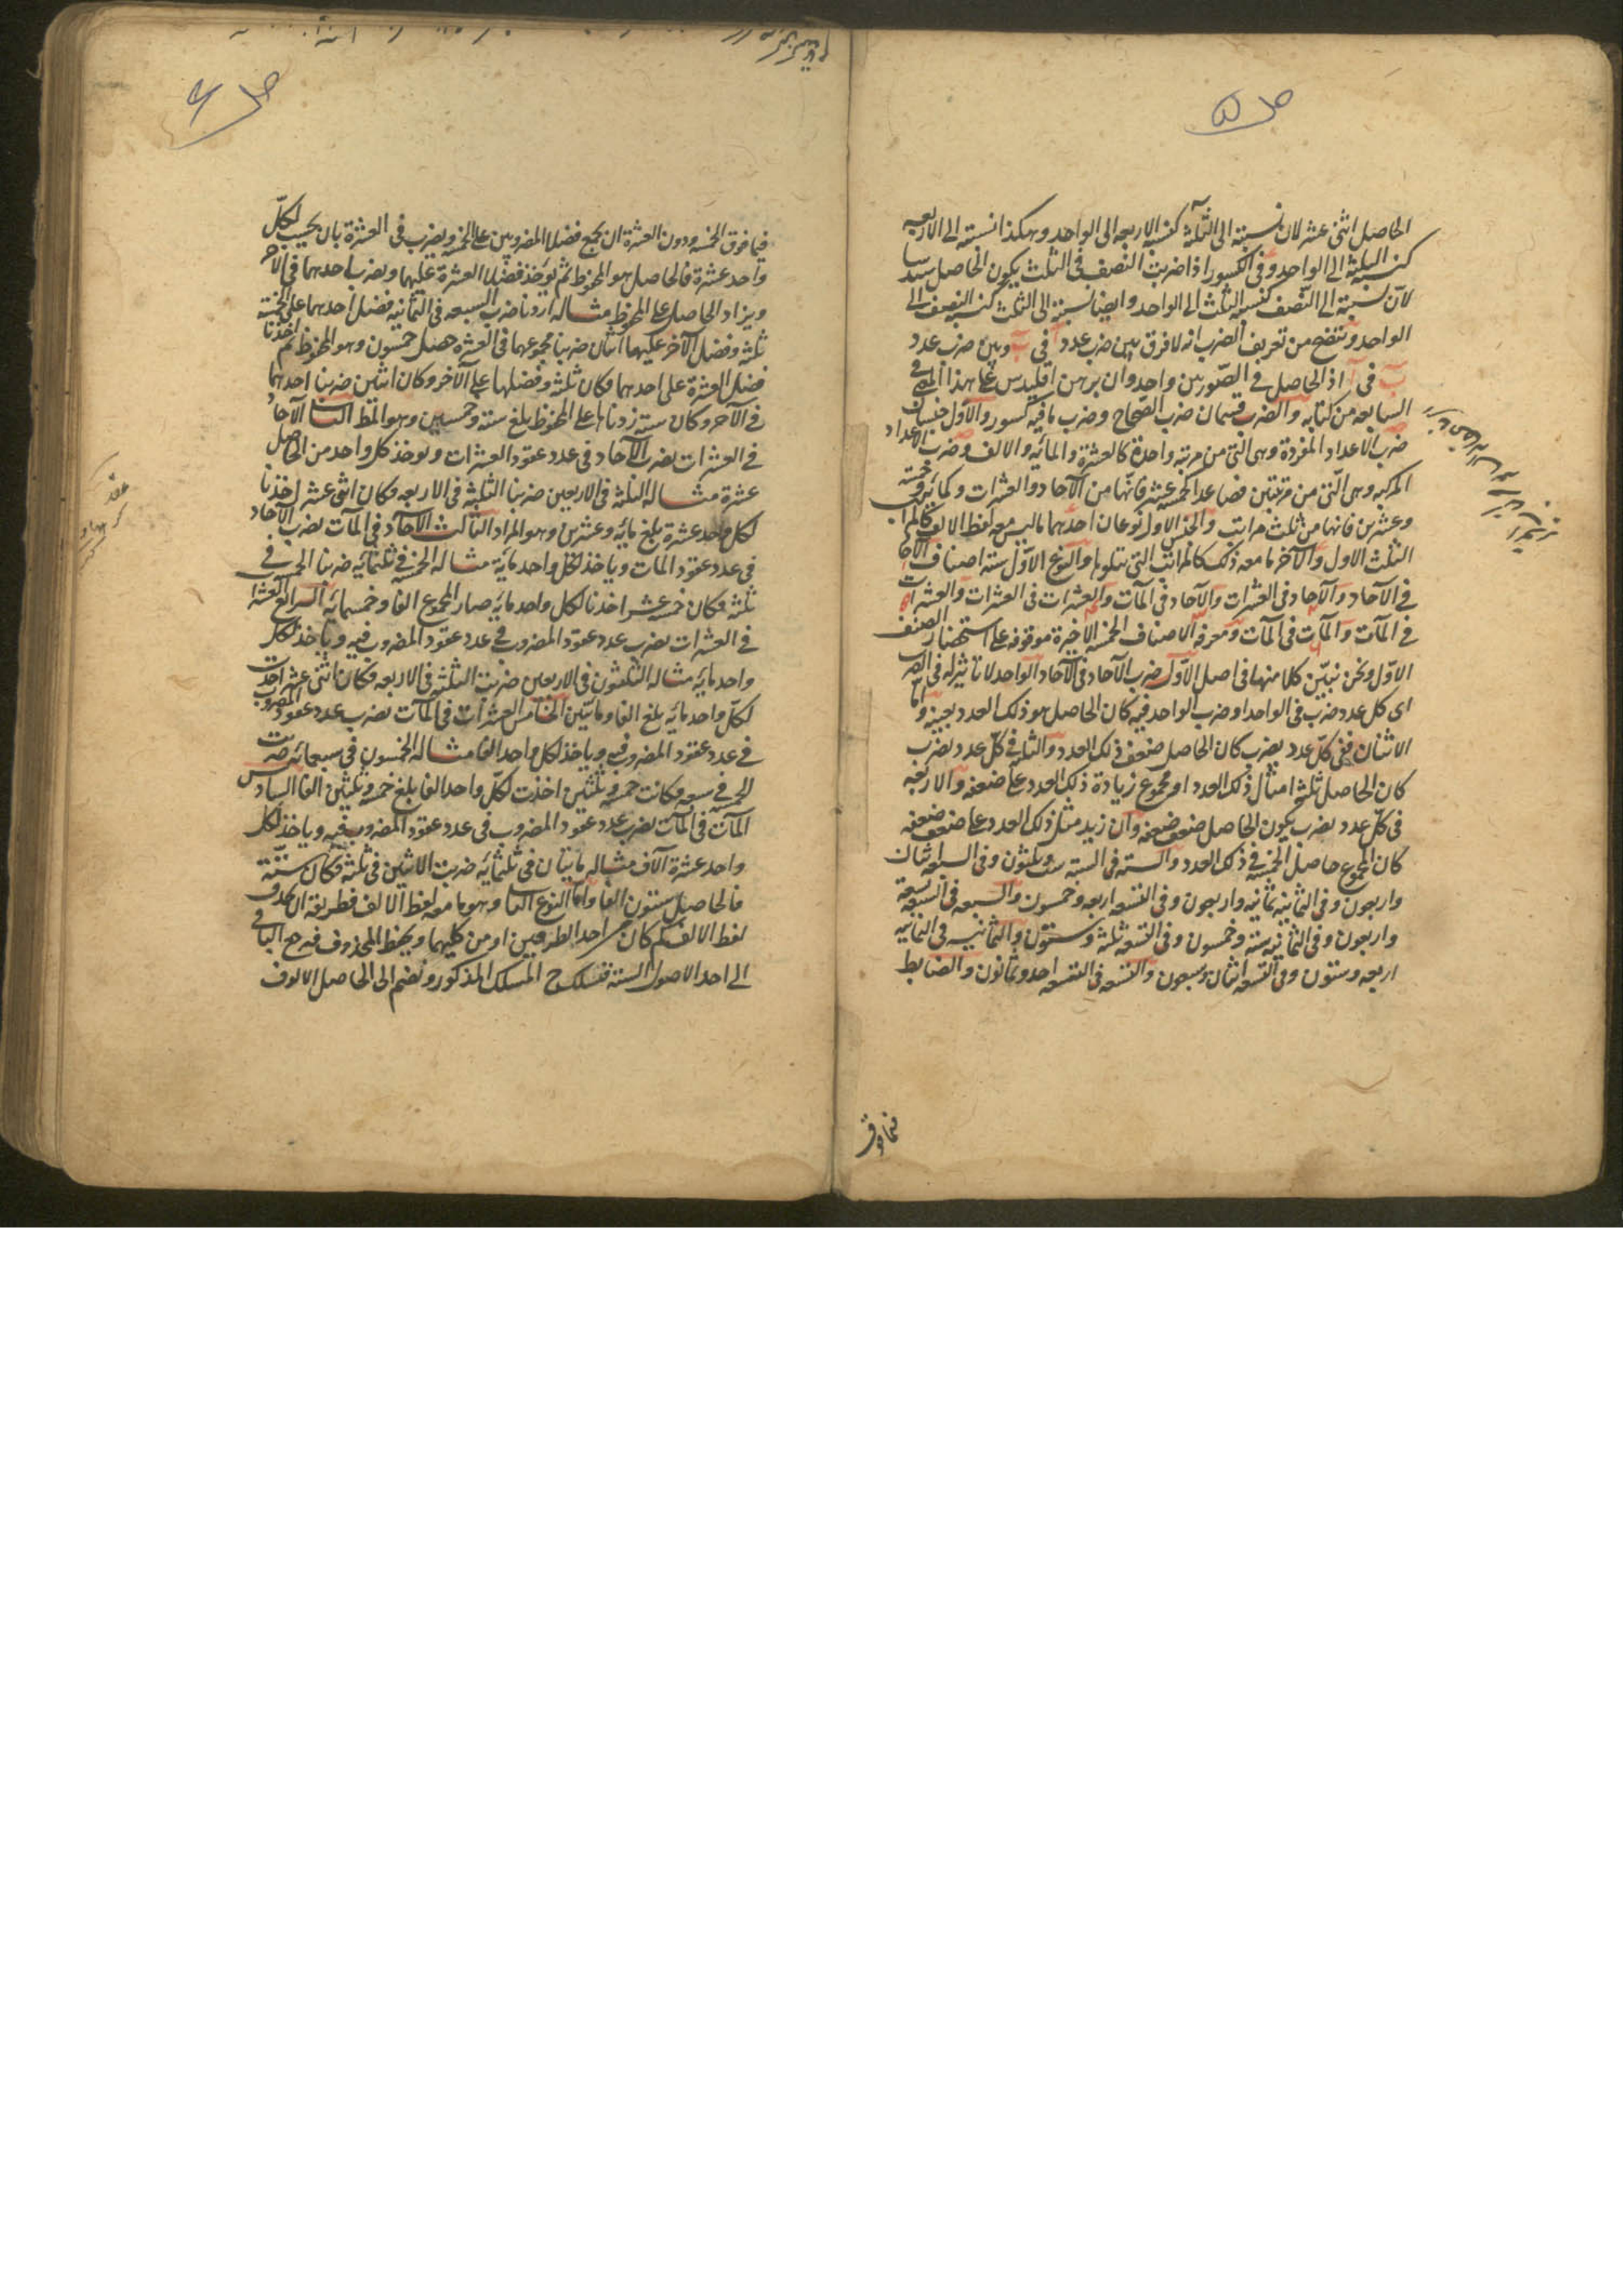 ص ۵
الحاصل اثنى عشر لان نسبته الى الثلثة كنسبة الاربعة الى الواحد وهكذا نسبته الى الاربعه
كنسبة الثلثة الى الواحد وفى الكسور اذا ضربت النصف فى الثلث يكون الحاصل سدسا
لان نسبته الى النصف كنسبة الثلث الى الواحد وايضا نسبته الى الثلث كنسبة النصف الى
الواحد ويتضح من تعريف الضرب انه لا فرق بين ضرب عدد آ فى ب وبين ضرب عدد
ب فى آ اذ الحاصل فى الصورتين واحد وان برهن اقليدس على هذا المدعى فى
السابعه من كتابه والضرب قسمان ضرب الصحاح وضرب ما فيه كسور والاول جنسان
ضرب الاعداد المفردة وهى التى من مرتبه واحدة كالعشرة والمائه والالف وضرب الاعداد
المركبه وهى التى من مرتبتين فصاعدا كخمسة عشر فانها من الآحاد والعشرات وكمائه وخمسة
وعشرين فانها من ثلث مراتب والجنس الاول نوعان احدهما ما ليس معه لفظ الالف كالمراتب
الثلث الاول والآخر ما معه ذلك كالمراتب التى تتلوها والنوع الاول ستة اصناف الآحاد
فى الآحاد والآحاد فى العشرات والآحاد فى المآت والعشرات فى العشرات والعشرات
فى المآت والمآت فى المآت ومعرفة الاصناف الخمسه الاخيرة موقوفه على استحضار الصنف
الاول ونحن نبيّن كلا منها فى اصل الاول ضرب الآحاد فى الآحاد الواحد لا تاثير له فى الضرب
اى كل عدد ضرب فى الواحد او ضرب الواحد فيه كان الحاصل هو ذلك العدد بعينه واما
الاثنان ففى كل عدد يضرب كان الحاصل ضعف ذلك العدد والثلثه فى كل عدد يضرب
كان الحاصل ثلثة امثال ذلك العدد او مجموع زيادة ذلك العدد على ضعفه والاربعه
فى كل عدد يضرب يكون الحاصل ضعف ضعفه وان زيد مثل ذلك العدد على ضعف ضعفه
كان المجموع حاصل الخمسة فى ذلك العدد والسته فى السته ستة وثلثون وفى السبعه اثنان
واربعون وفى الثمانية ثمانيه واربعون وفى التسعه اربعه وخمسون والسبعه فى السبعه تسعة
واربعون وفى الثمانيه ستة وخمسون وفى التسعه ثلثة وستون والثمانيه فى الثمانيه
اربعه وستون وفى التسعه اثنان وسبعون والتسعه فى التسعه احد وثمانون والضابط
فيما فوق
ص ۶
فيما فوق الخمسه ودون العشرة ان يجمع فضلا المضروبين على الخمسه ويضرب فى العشرة بان يحسب لكل
واحد عشرة فالحاصل هو المحفوظ ثم يؤخذ فضلا العشرة عليهما ويضرب احدهما فى الآخر
ويزاد الحاصل على المحفوظ مثاله اردنا ضرب السبعه فى الثمانيه فضل احدهما على الخمسة
ثلثة وفضل الآخر عليها اثنان ضربنا مجموعهما فى العشرة حصل خمسون وهو المحفوظ ثم اخذنا
فضل العشرة على احدهما فكان ثلثة وفضلها على الآخر وكان اثنين ضربنا احدهما
فى الآخر وكان ستة زدناها على المحفوظ بلغ ستة وخمسين وهو المط الثانى الآحاد
فى العشرات يضرب الآحاد فى عدد عقود العشرات ويوخذ كل واحد من الحاصل
عشرة مثاله الثلثة فى الاربعين ضربنا الثلثة فى الاربعه فكان اثنى عشر اخذنا
لكل واحد عشرة بلغ مائه وعشرين وهو المراد الثالث الآحاد فى المآت يضرب الآحاد
فى عدد عقود المآت وياخذ لكل واحد مائة مثاله الخمسة فى ثلثمائه ضربنا الخمسه فى
ثلثة فكان خمسة عشر اخذنا لكل واحد مائة صار المجموع الفا وخمسمائه الرابع العشرات
فى العشرات يضرب عدد عقود المضروب فى عدد عقود المضروب فيه وياخذ لكل
واحد مائه مثاله الثلثون فى الاربعين ضربت الثلثة فى الاربعه فكان اثنى عشر اخذت
لكل واحد مائه بلغ الفا ومائتين الخامس العشرات فى المآت يضرب عدد عقود المضروب
فى عدد عقود المضروب فيه وياخذ لكل واحد الفا مثاله الخمسون فى سبعمائه ضربت
الخمسة فى سبعه وكانت خمسة وثلثين اخذت لكل واحد الفا بلغ خمسة وثلثين الفا السادس
المآت فى المآت يضرب عدد عقود المضروب فى عدد عقود المضروب فيه وياخذ لكل
واحد عشرة آلاف مثاله مائتان فى ثلثمائه ضربت الاثنين فى ثلثة فكان ستة
فالحاصل ستون الفا واما النوع الثانى وهو ما معه لفظ الالف فطريقه ان يحذف
لفظ الالف كم كان من احد الطرفين او من كليهما ويحفظ المحذوف فيرجع الباقى
الى احد الاصول الستة فتسلك ح المسلك المذكور وتضم الى الحاصل الالوف